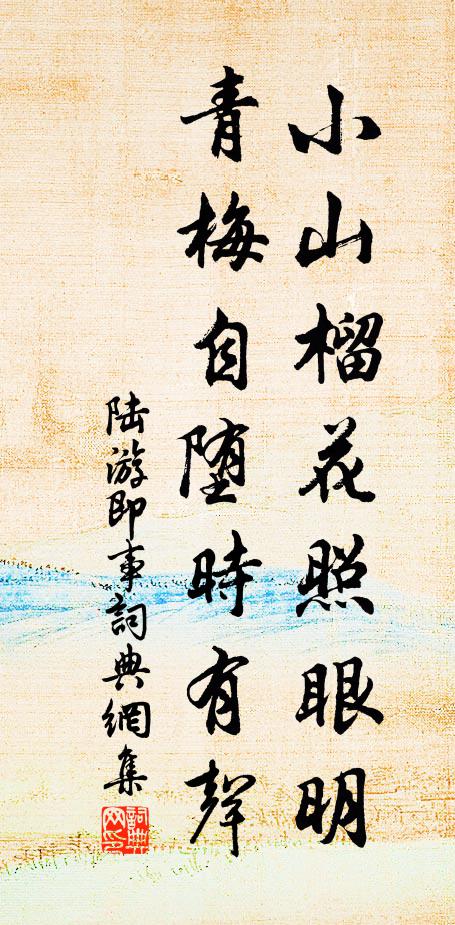 小山榴花照眼明
青梅自堕時有聲
陆游即事詞典網集
詞典网印